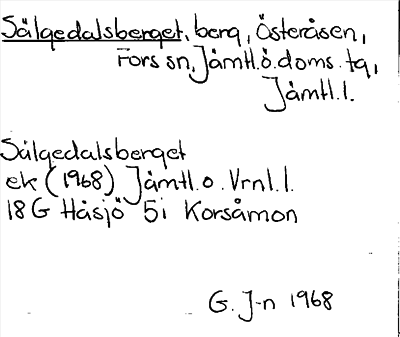 Sälgedalsberget, berg, Österåsen,
Fors sn, Jämtl.ö.doms.tg,
Jämtl.l.
Sälgedalsberget
ek (1968) Jämtl.o.Vrnl.l.
18G Håsjö 5i Korsåmon
G. J-n 1968